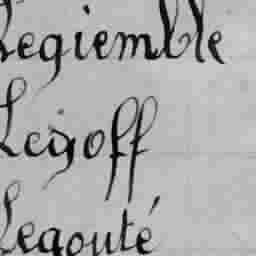 Legiemble
Legoff
Legouté